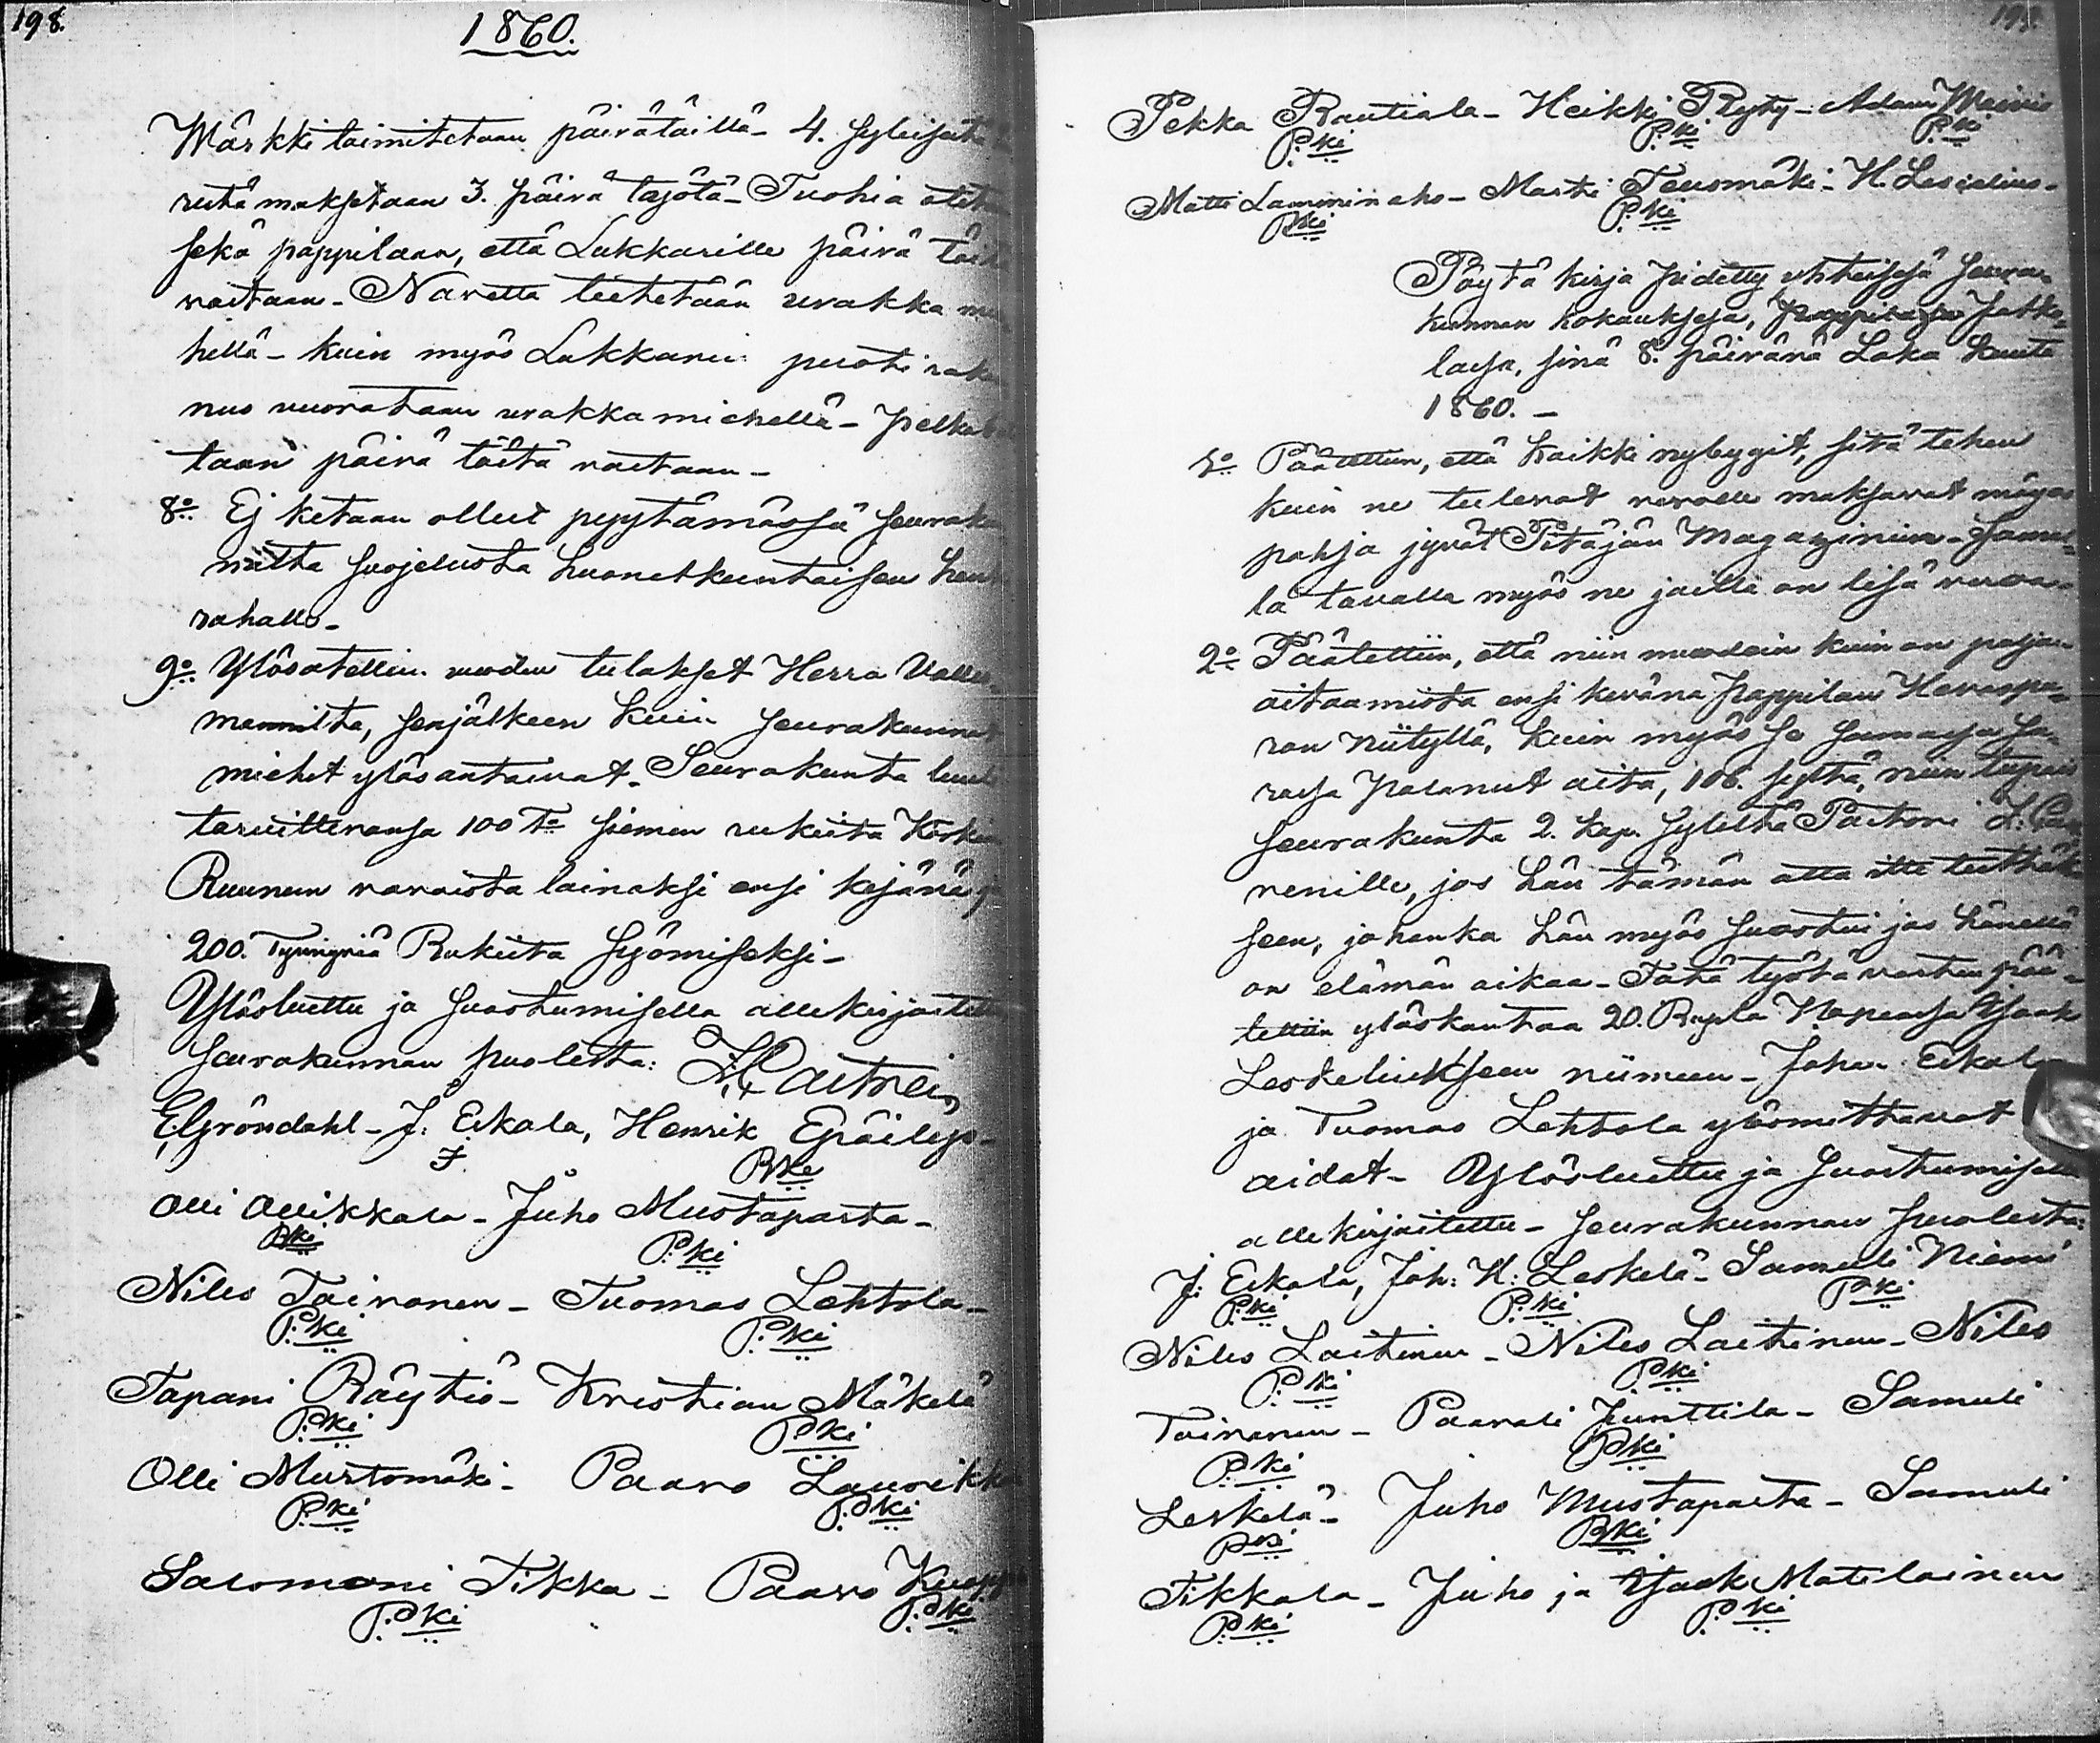 198.
1860.
Märkki toimitetaan päivätöillä - 4. sylesestä
restä maksetaan 3. päivä työtä - Tuohia otet
sekä pappilaan, että Lukkarille päivä töitä
vastaan - Navetta teetetään urakka mie
hellä - kuin myös Lukkarin puoti raken
nus vuorataan urakka miehellä -
taan päivä töitä vastaan -
8:o Ej ketään ollut pyytämässä seuraku
nalta suojelusta huonetkuntaisen hen
rahalle -
9:o Ylösotettiin vuoden tulokset Herra Valles
mannilta, senjälkeen kuin seurakunnat
miehet ylösantaivat. Seurakunta luuli
tarvittevansa 100 T:o siemen rukiita Korkia
Ruunun varoista lainaksi ensi kesänä ja
200. Tynnyriä Rukiita syömiseksi -
Ylösluettu ja suostumisella allekirjoitettu
seurakunnan puolesta:
E. Gröndahl - J: Eskola, Henrik Epäilys -
P:ki
Olli Ollikkala - Juho Mustaparta -
P:ki P:ki
Niles Toivonen - Tuomas Lehtola -
P:ki P:ki
Tapani Räytiö - Kristian Mäkelä
P:ki P:ki
Olli Mustomäki - Paavo Laurikka
P:ki P:ki
Salomoni Tikka - Paavo
P:ki P:ki
199.
Pekka Rautiala - Heikki Ryty - Adam
P:ki P:ki P:ki
Matti Lamminaho - Martti Teusmäki - H. Leskelius -
P:ki P:ki
Pöytä kirja pidetty yhteisessä seura-
kunnan kokouksesa, Pappilassa Jatko-
lassa, sinä 8. päivänä Loka kuuta
1860. -
1:o Päätettiin, että kaikki nybygit, sitä tehen
kuin ne tulevat verolle maksavat myös
pohja jyvät Pitäjän Magaziniin - Samal-
la tavalla myös ne joilla on lisä veroa -
2:o Päätettiin, että niin muodoin kuin on pohjan
aitaamista ensi kevänä Pappilan Havaspe-
ron niityllä, kuin myös se samassa sa-
rassa palanut aita, 106. syltä, niin lupais
seurakunta 2. kop. syleltä Pastori J. Cast-
renille, jos hän tämän otta itte teettääk
seen, johonka hän myös suostui jos hänellä
on elämän aikaa - Tätä työtä vasten pää-
tettiin ylöskantaa 20. Rupla Hopeassa Isaak
Leskeliuksseen niimeen - Johan Eskola
ja Tuomas Lehtola ylösmittaavat
aidat - Ylösluettu ja suostumisella
allekirjoitettu - seurakunnan puolesta:
J: Eskola, Joh: H: Leskelä - Samuli Niemi
P:ki P:ki P:ki
Niles Laitinen - Niles Laitinen - Niles
P:ki P:ki
Toivonen - Paavali Junttila - Samuli
P:ki P:ki
Leskelä - Juho Mustaparta - Samuli
P:ki P:ki
Tikkala - Juho ja Isaak Matilainen
P:ki P:ki